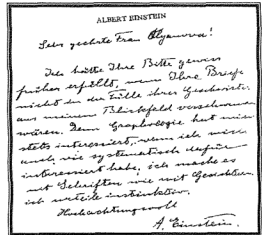 ALBERT EINSTEIN
Sehr geehrte Frau
Ich hätte Ihre Bitte gewiss
früher erfüllt, wenn Ihre Briefe
nicht in der Fülle ihrer Geschwister
aus meinem Blickfeld verschwunden
wären. Denn Graphologie hat mich
stets interessiert, wenn ich mich
auch nie systematisch dafür
interessiert habe, ich mache es
mit Schriften wie mit Gesichtern
ich urteile instinktiv.
Hochachtungsvoll
A. Einstein.